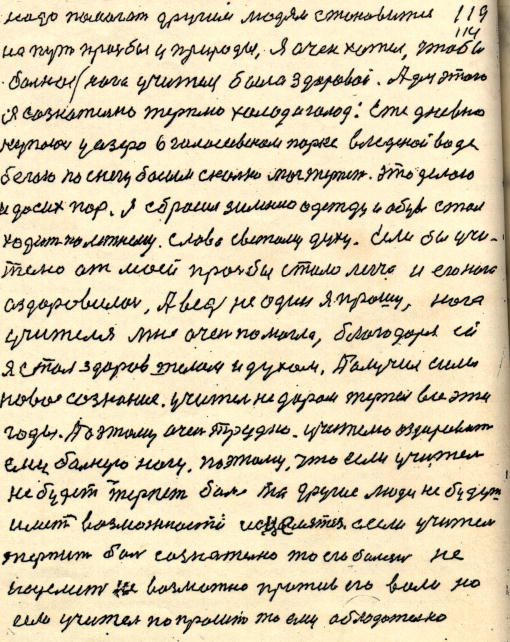 надо помогат другим людям становитися 119
на пут прозбы и природы, я очен хотел, чтобы 114
болная нога учител была здоровой. А дл этого
я сознателно терплю холод и голод. Еже дневно
купаюс у озеро в голасевском парке в ледяной воде
бегаю по снегу босым сколко могу терпет. это делаю
и до сих пор. я сбросил зимнию одежду и обув стал
ходит по летнему. слава святому духу. Если бы учи-
телю от моей прозбы стало легче и его нога
оздоровилас, А вед не один я прошу, нога
учителя мне очен помогла, благодаря ей
я стал здоров телом и духом. Получил силы
новое сознание. учител не даром терпел все эти
годы. Поэтому очен трудно. учителю оздоровит
ему болную ногу. поэтому, что если учител
не будет терпет бол та другие люди не будут
имет возможностй исцелятся. если учител
терпит бол сознателно то его болезн не
исцелит не возможно против его воли но
если учител попросит то ему облодателно